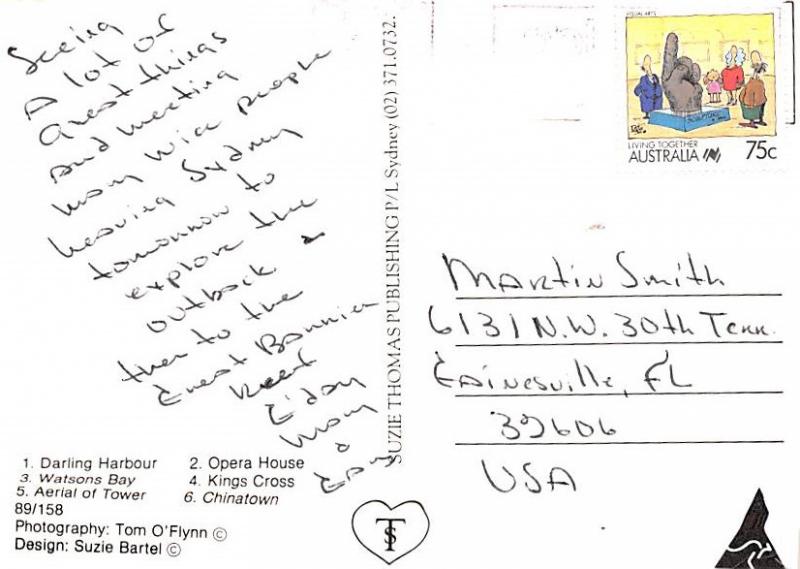 Seeing
A lot of
Great things
and meeting
many nice people
Leaving Sydney
tomorrow to
explore the
outback &
then to the
Great Barrier
Reef
G'day
Mary
&
SUZIE THOMAS PUBLISHING P/L Sydney (02) 371.0732.
VISUAL ARTS
SCULPTURE
LIVING TOGETHER
AUSTRALIA 75c
Martin Smith
6131 N.W. 30th Terr.
Gainesville, FL
32606
USA
1. Darling Harbour 2. Opera House
3. Watsons Bay 4. Kings Cross
5. Aerial of Tower 6. Chinatown
89/158
Photography: Tom O'Flynn ©
Design: Suzie Bartel ©
TS